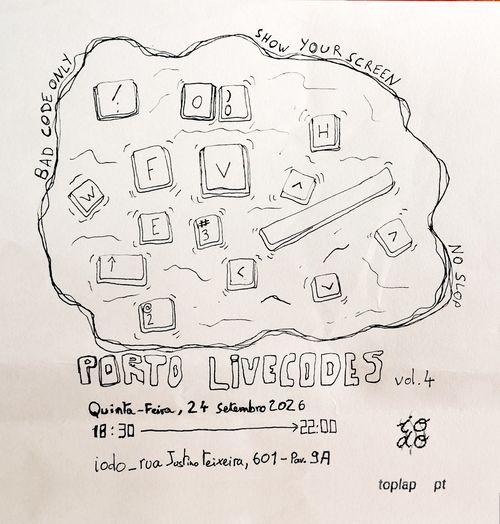 SHOW YOUR SCREEN
BAD CODE ONLY
NO SLOP
! O ) 0
H
W F V ^
E # 3 >
↑ < v
@ 2
PORTO LIVECODES vol.4
Quinta-Feira, 24 setembro 2026
18:30 → 22:00
iodo_rua Justino Teixeira, 601 - Pav. 9A
io
do
toplap pt